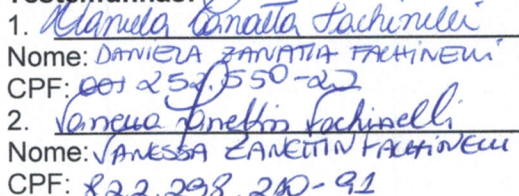 Testemunhas:
1. Daniela Zanatta Fachinelli
Nome: DANIELA ZANATTA FACHINELLI
CPF: 001 252.550-27
2. Vanessa Zanettin Fachinelli
Nome: VANESSA ZANETTIN FACHINELLI
CPF: 822.298.210-91